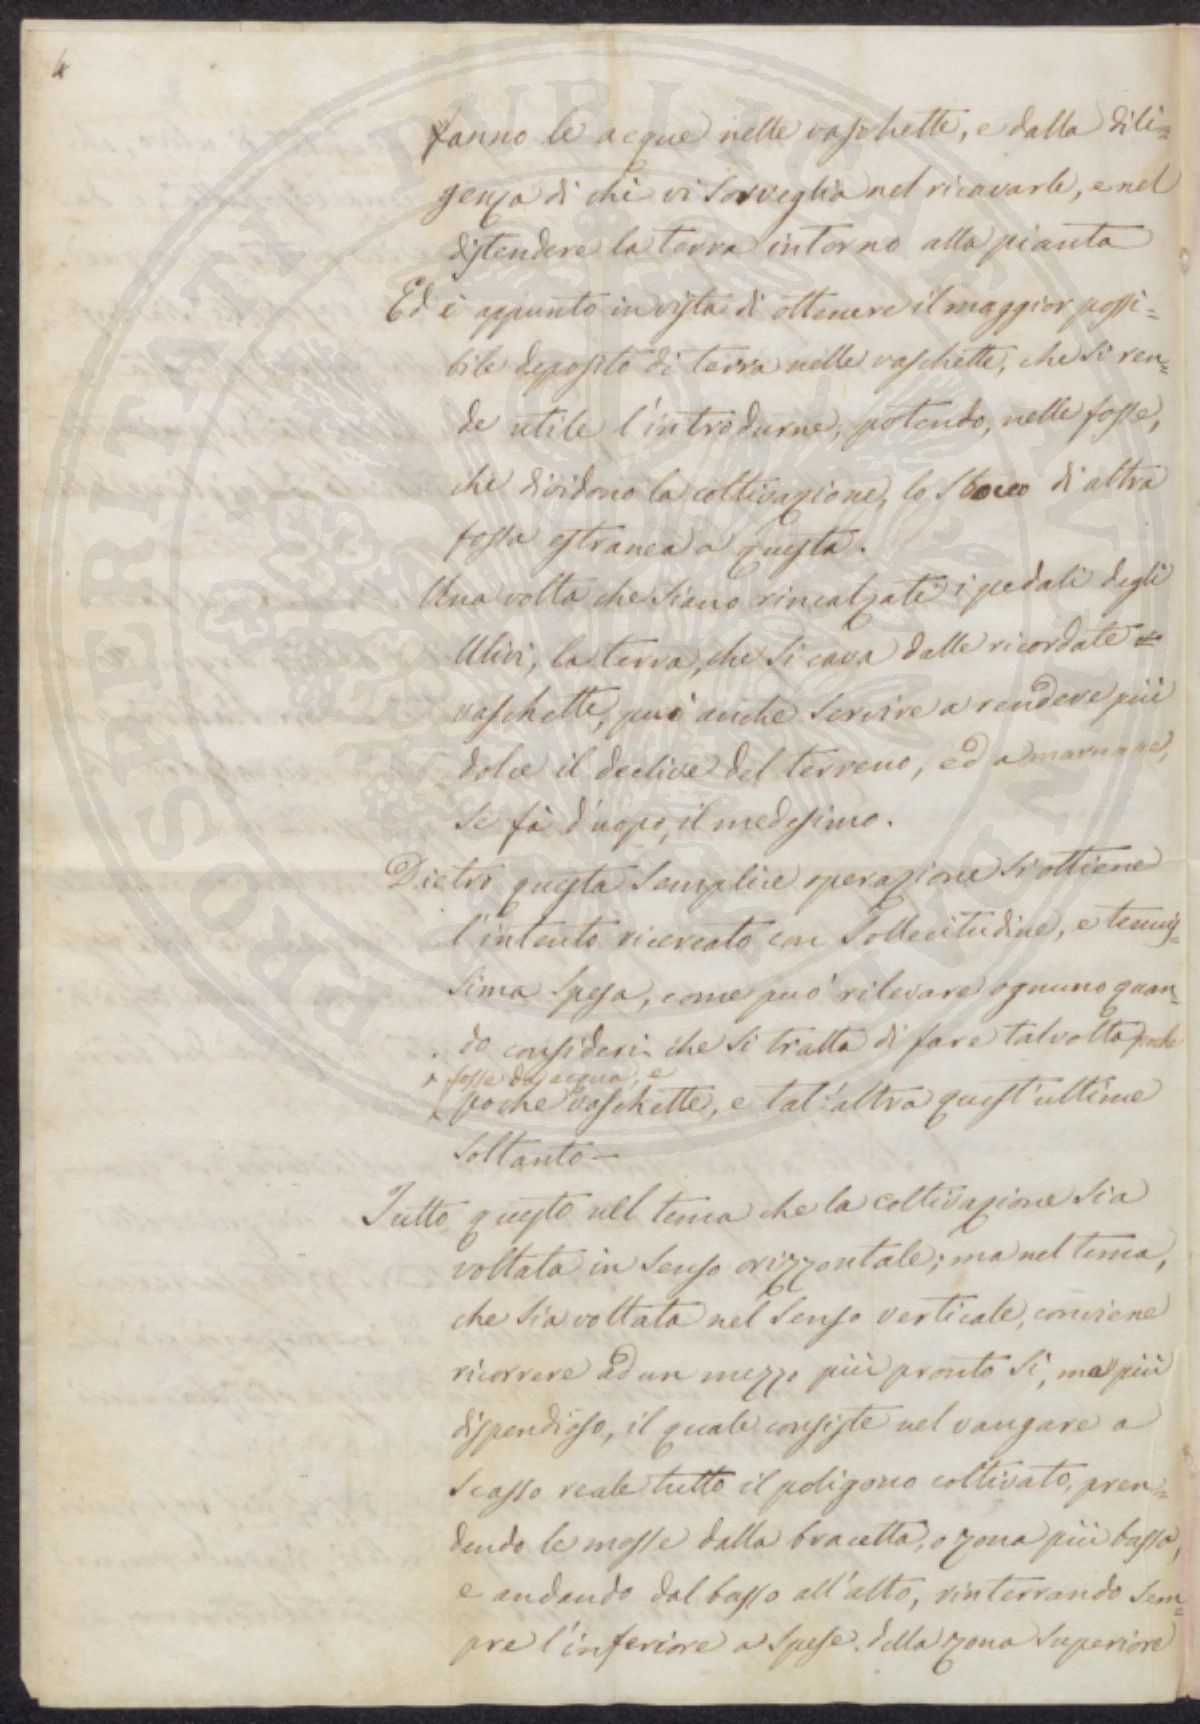 4
fanno le acque nelle vaschette, e dalla dili=
genza di chi vi sorveglia nel ricavarle, e nel
distendere la terra intorno alla pianta
Ed è appunto in vista di ottenere il maggior possi=
bile deposito di terra nelle vaschette, che si ren=
de utile l'introdurne, potendo, nelle fosse,
che dividono la coltivazione, lo sbocco di altra
fossa estranea a questa.
Una volta che siano rincalzati i pedali degli
Ulivi, la terra, che si cava dalle ricordate
vaschette, può anche servire a rendere più
dolce il declive del terreno, ed a marnare,
se fà d'uopo, il medesimo.
Dietro questa semplice operazione si ottiene
l'intento ricercato con sollecitudine, e tenuis=
sima spesa, come può rilevare ognuno quan=
do consideri che si tratta di fare talvolta poche
fosse da acqua, e
poche vaschette, e tal'altra quest'ultime
soltanto —
Tutto questo nel tema che la coltivazione sia
voltata in senso orizzontale; ma nel tema,
che sia voltata nel senso verticale, conviene
ricorrere ad un mezzo più pronto sì, ma più
dispendioso, il quale consiste nel vangare a
scasso reale tutto il poligono coltivato, pren=
dendo le mosse dalla bracetta, o zona più bassa,
e andando dal basso all'alto, rinterrando sem=
pre l'inferiore a spese della zona superiore
PROSPERITATI PUBLICAE